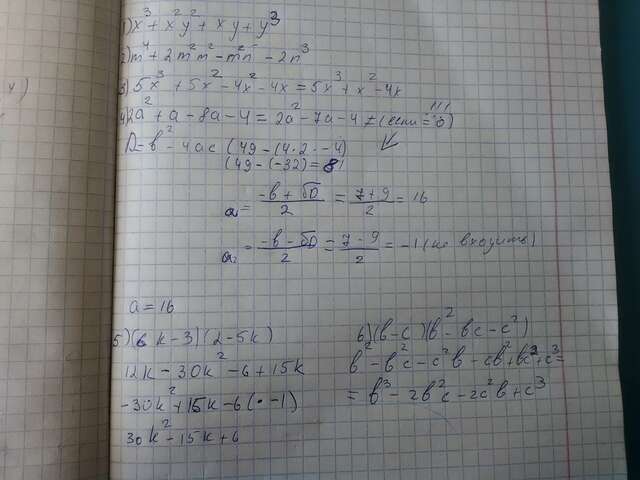 1) x³ + x²y² + xy + y³
2) m⁴ + 2m²m² - m²n - 2n³
3) 5x³ + 5x² - 4x² - 4x = 5x³ + x² - 4x
4) 2a² + a - 8a - 4 = 2a² - 7a - 4 ≠ (если = 0)
D = b² - 4ac (49 - (4·2·-4)
(49 - (-32) = 81
a₁ = (-b + √D)/2 = (7+9)/2 = 16
a₂ = (-b - √D)/2 = (7-9)/2 = -1 (не входить)
a = 16
5) (6k - 3)(2 - 5k)
12k - 30k² - 6 + 15k
-30k² + 15k - 6 (· -1)
30k² - 15k + 6
6) (b - c)(b² - bc - c²)
b² - b²c - c²b - cb² + bc² + c³ =
= b³ - 2b²c - 2c²b + c³